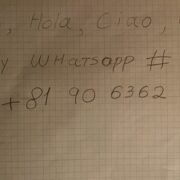 , Hola, Ciao,
y WHATSAPP #
+81 90 6362